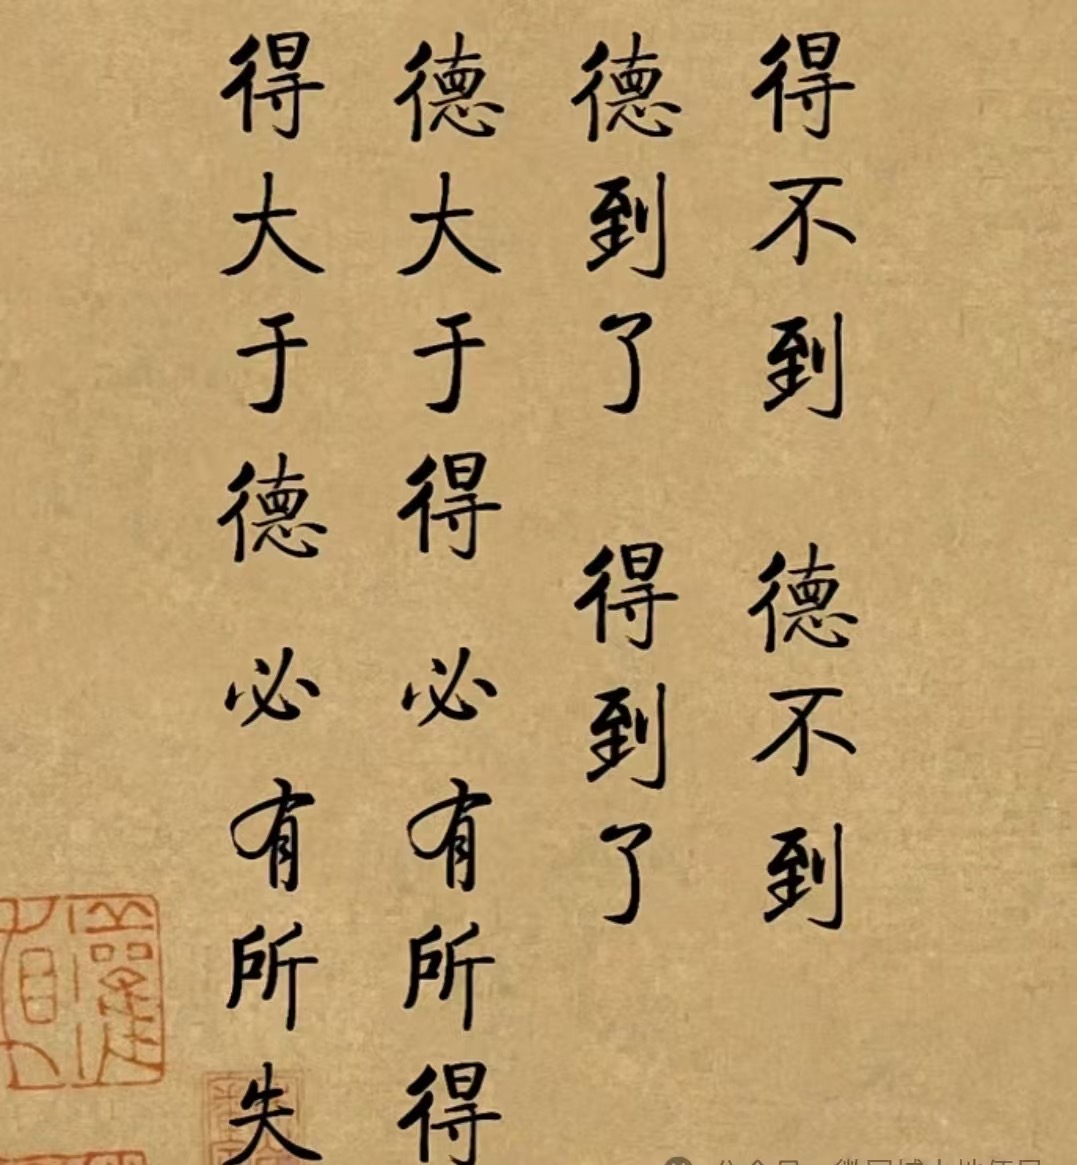 得不到 德不到
德到了 得到了
德大于得 必有所得
得大于德 必有所失